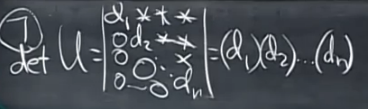 ⑦
det U = | d₁ * * * |
| 0 d₂ * * |
| 0 0 ⋱ * |
| 0 – 0 dₙ | = (d₁)(d₂)...(dₙ)